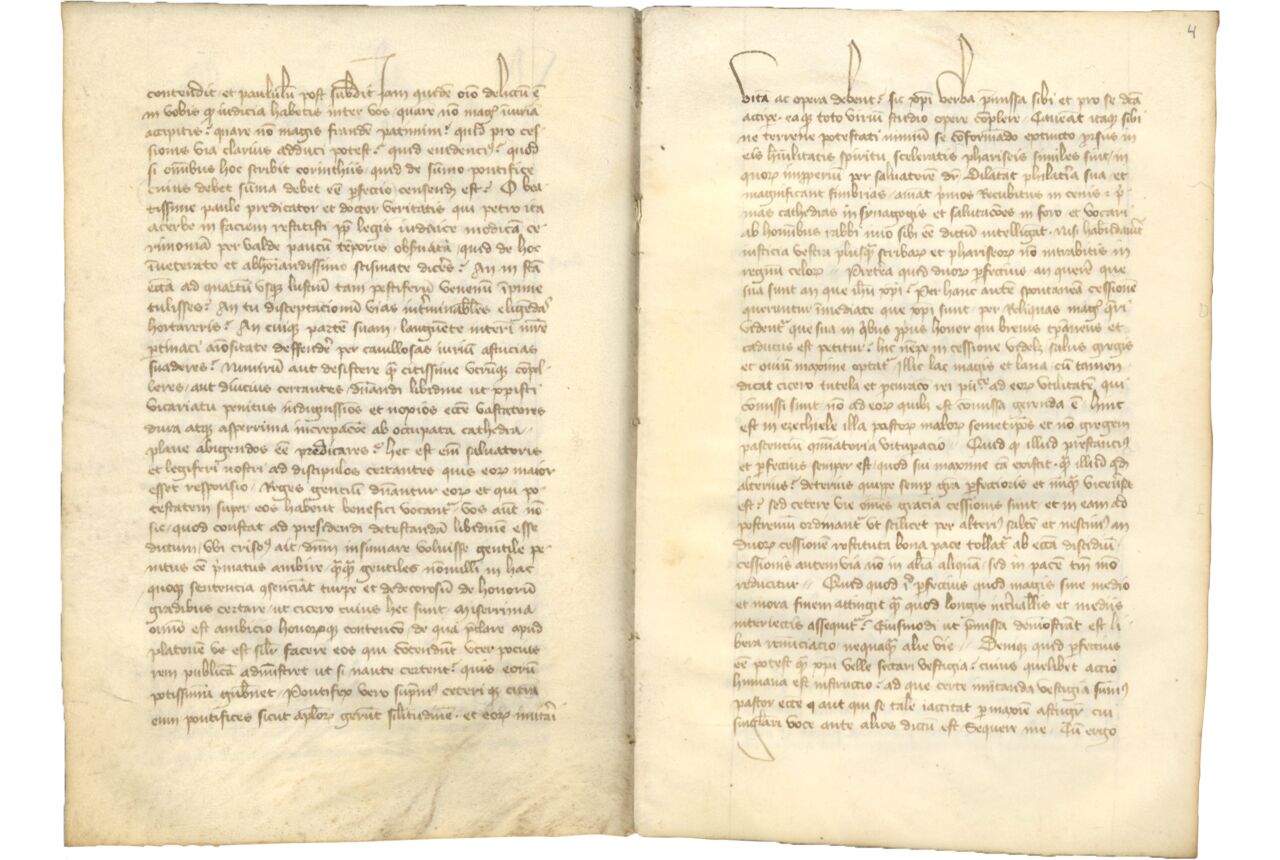 contendit et paululū post subdit Jam quidē oīo delictū ē
in vobis q iudicia habetis inter vos quare nō magꝭ iniuriā
accipitis? quare nō magis fraudē patimini? quid pro ces
sionis via clarius adduci potest? quid euidencius? quod
si oīnibus hoc scribit corinthiis quid de sūmo pontifice
cuius debet sūma debet eē pfectio censendū est? O bea
tissime paule predicator et doctor veritatis qui petro ita
acerbe in faciem restitisti legis iudaice modicā ce
rimoniā per valde paucū tēporis obseruatā quid de hoc
inueterato et abhoīandissimo scismate dicēs? An in scā
eccā ad quartū usq lustrū tam pestiferū venenū ipūne
tulisses? An tu disceptacionū vias intīnabīles eligendas
hortareris? An cuiq partē suam languente interī mrē
ptinaci aīositate deffendē per cauillosas iuriū astucias
suaderes? Nimirū aut desistere citissime utrūq copel
leres aut diucius certantes dnandi libidine ut xpisti
vicariatu penitus indignissīos et noxios eccē vastatores
dura atq asperrima increpacōe ab occupata cathedra
plane abigendos eē predicares? hec est enī saluatoris
et legiferi nostri ad discipulos certantes quis eorꝝ maior
esset responsio Reges genciū dnantur eorꝝ et qui po
testatem super eos habent benefici vocantꝰ vos aut nō
sic quod constat ad presidendi detestandā libidinē esse
dictum vbi crisoꝰ ait dnm insinuare voluisse gentile pe
nitus eē pmatus ambire gentiles nōnulli in hac
quoq sentencia qsenciāt turpe et dedecorosū de honorū
gradibus certare ut cicero cuius hec sunt Miserrima
oīnnō est ambicio honorūq contencō de qua pclare apud
platonē ve est silr facere eos qui contendūt vter pocius
rem publicā admīstret ut si naute certent? quis eorū
potissimū gubnet Pontifex vero supmꝰ ceteri q citra
eum pontifices sicut aplorꝝ gerunt silitudinē et eorꝝ imitari
vitā ac opera debent? sic xpi verba pmissa sibi et pro se dcā
accipe eaq toto viriū studio opere cōplere Caueat itaq sibi
ne terrene potestati nimiū se cōformādo eptincto prorsus in
eis hūilitatis spiritu sceleratis phariseis similes sint in
quorꝝ imperiū per saluatorē dr Dilatāt philactīa sua et
magnificant fimbrias amāt pmos recubitus in cenis et p
mas cathedras in synagogis et salutacōes in foro et vocari
ab hominibus rabbi imo sibi eē dictū intelligāt nisi habūdauit
iusticia vestra plusq scribarꝝ et phariseorꝝ nō intrabitis in
regnū celorꝝ Preterea quid duorꝝ pfectius an querē que
sua sunt an que ihū xpi? Per hanc autē spontaneā cessionē
queruntur īmediate que xpi sunt per reliquas magꝭ qri
videntꝰ que sua in qbus ppus honor qui breuis tpaneus et
caducus est petitur hīc nēpe in cessione videlꝫ salus gregis
et ouiū maxime optatꝰ Illic lac magis et lana cū tamen
dicat cicero tutela et pcuraco rei pu ad eorꝝ vtilitatē qui
cōmissi sunt nō ad eorꝝ quibus est cōmissa gerenda ē hinc
est in ezechiele illa pastorꝝ malorꝝ semetipsos et nō gregem
pascenciū quinatoria vitupacio Quid q illud prestanciꝰ
et pfectius semper est quod sui maxime cā existit illud qd
alterius? deterius quippe semp grā pfectioris et nūq viceusa
est? sed cetere vie oīnes gracia cessionis sunt et in eam ad
postremū ordinantꝰ vt scilicet per alterꝰ saltē et nesciuiꝰ an
duorꝝ cessionē restituta bona pace tollatꝰ ab eccā discidiū
cessionis autem via nō in alia aliquā sed in pacē tm īmo
reducitur Quid quod pfectius quod magis sine medio
et mora finem attingit quod longis interuallis et mediis
interiectis assequitꝰ? Eiusmodi ut pmissa demostrant est li
bera renūciacio nequaq alie vie Deniq quid pfectius
eē potest xpi velle sectari vestigia? cuius quelibet actio
humana est instruccio? ad que certe imitanda vestigia sumꝰ
pastor eccē aut qui se tale iactitat pmaxie astringr cui
singlari voce ante alios dictū est Sequere me Cū ergo
4